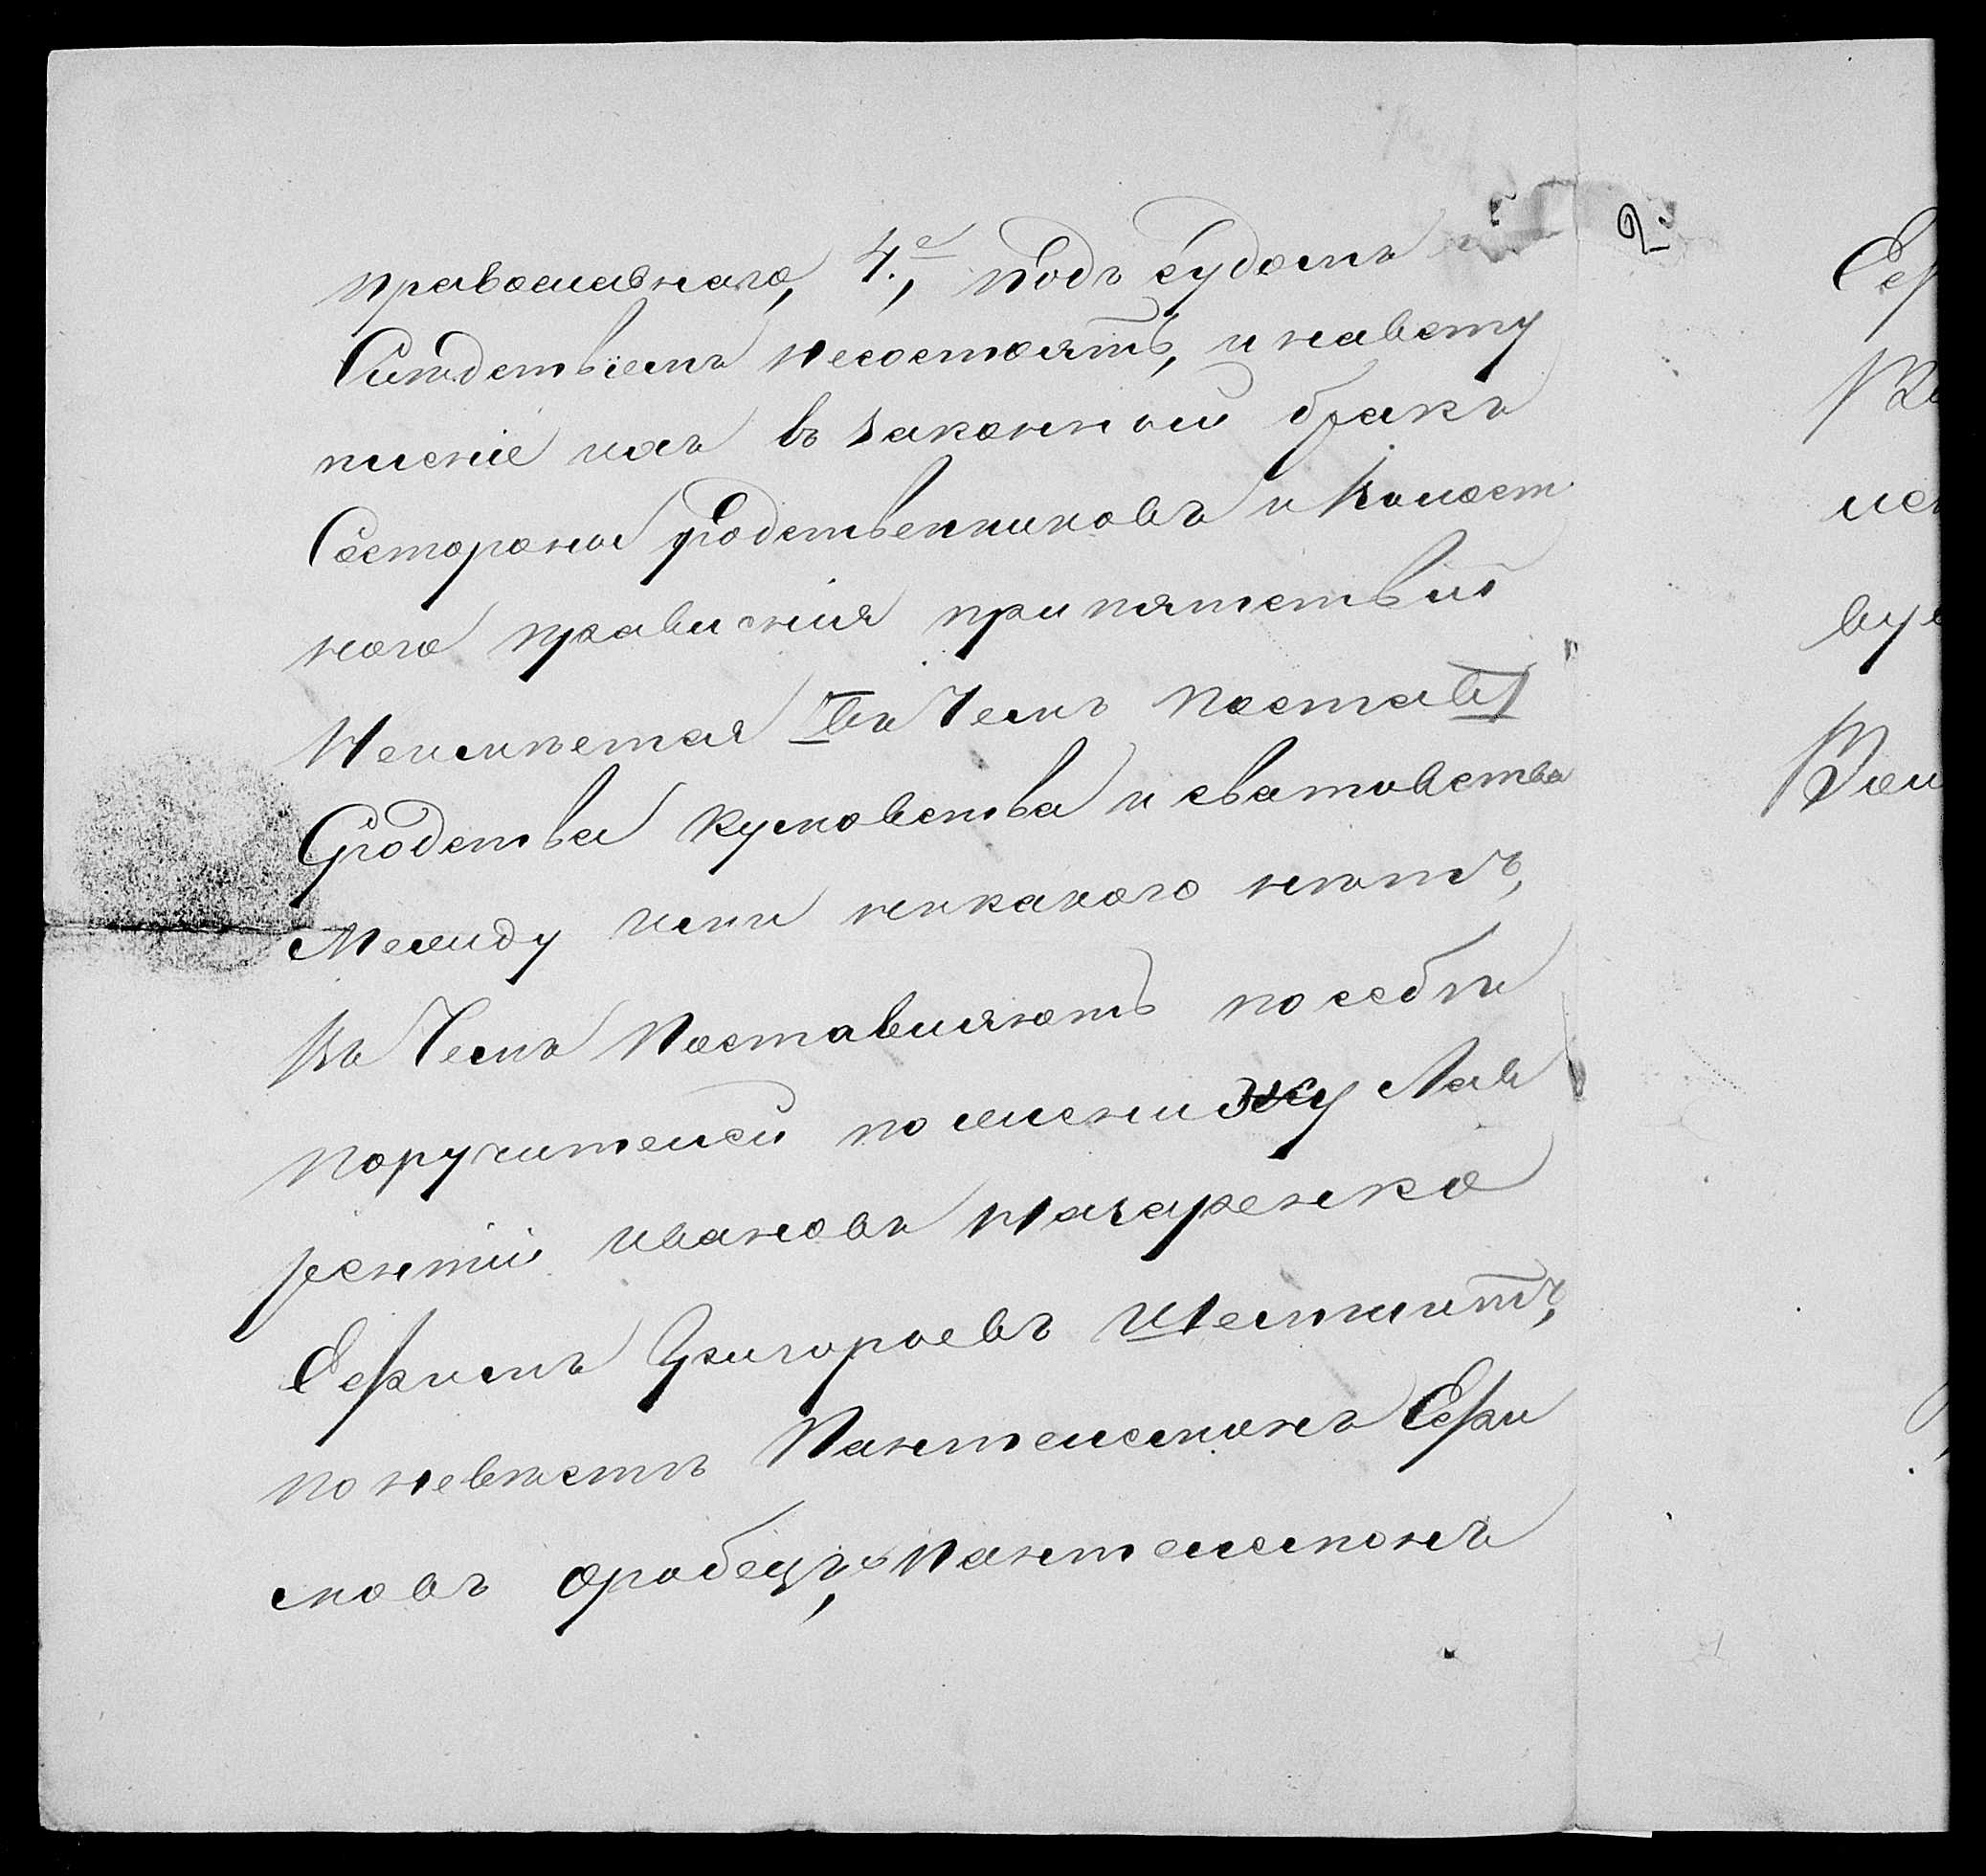 православнаго, 4.е, подъ судомъ и
Слѣдствіемъ несостоятъ, и навсту
пленіе ихъ въ законный бракъ
Состороны родственниковъ и Волост
ного правленія припятствій
Неимѣется [въ Чемъ постав]
Сродства кумовства и сватовства
Между ими никакого нѣтъ,
Въ Чемъ Поставляютъ по себѣ
поручителей по женику Лав
рентій Ивановъ Назаренко
Ефимъ Григорьевъ
по невѣстѣ Пантелемонъ Ефи
мовъ Оробецъ, Пантелемонъ
2